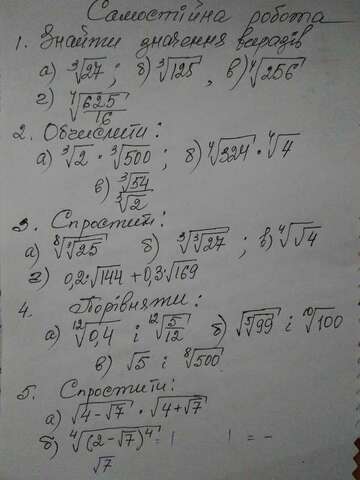 Самостійна робота
1. Знайти значення виразів
а) ∛27 ; б) ∛125 , в) ∜256
г) ∜(625/16)
2. Обчислити:
а) ∛2 · ∛500 ; б) ∜324 · ∜4
в) ∛54/∛2
3. Спростити:
а) ⁸√∛25 б) ∛∛27 ; в) ∜√4
г) 0,2·√144 + 0,3·√169
4. Порівняти:
а) ¹²√0,4 і ¹²√(5/12) б) √⁵√99 і ¹⁰√100
в) √5 і ⁸√500
5. Спростити:
а) √(4-√7) · √(4+√7)
б) ∜((2-√7)⁴) = | | = -
√7